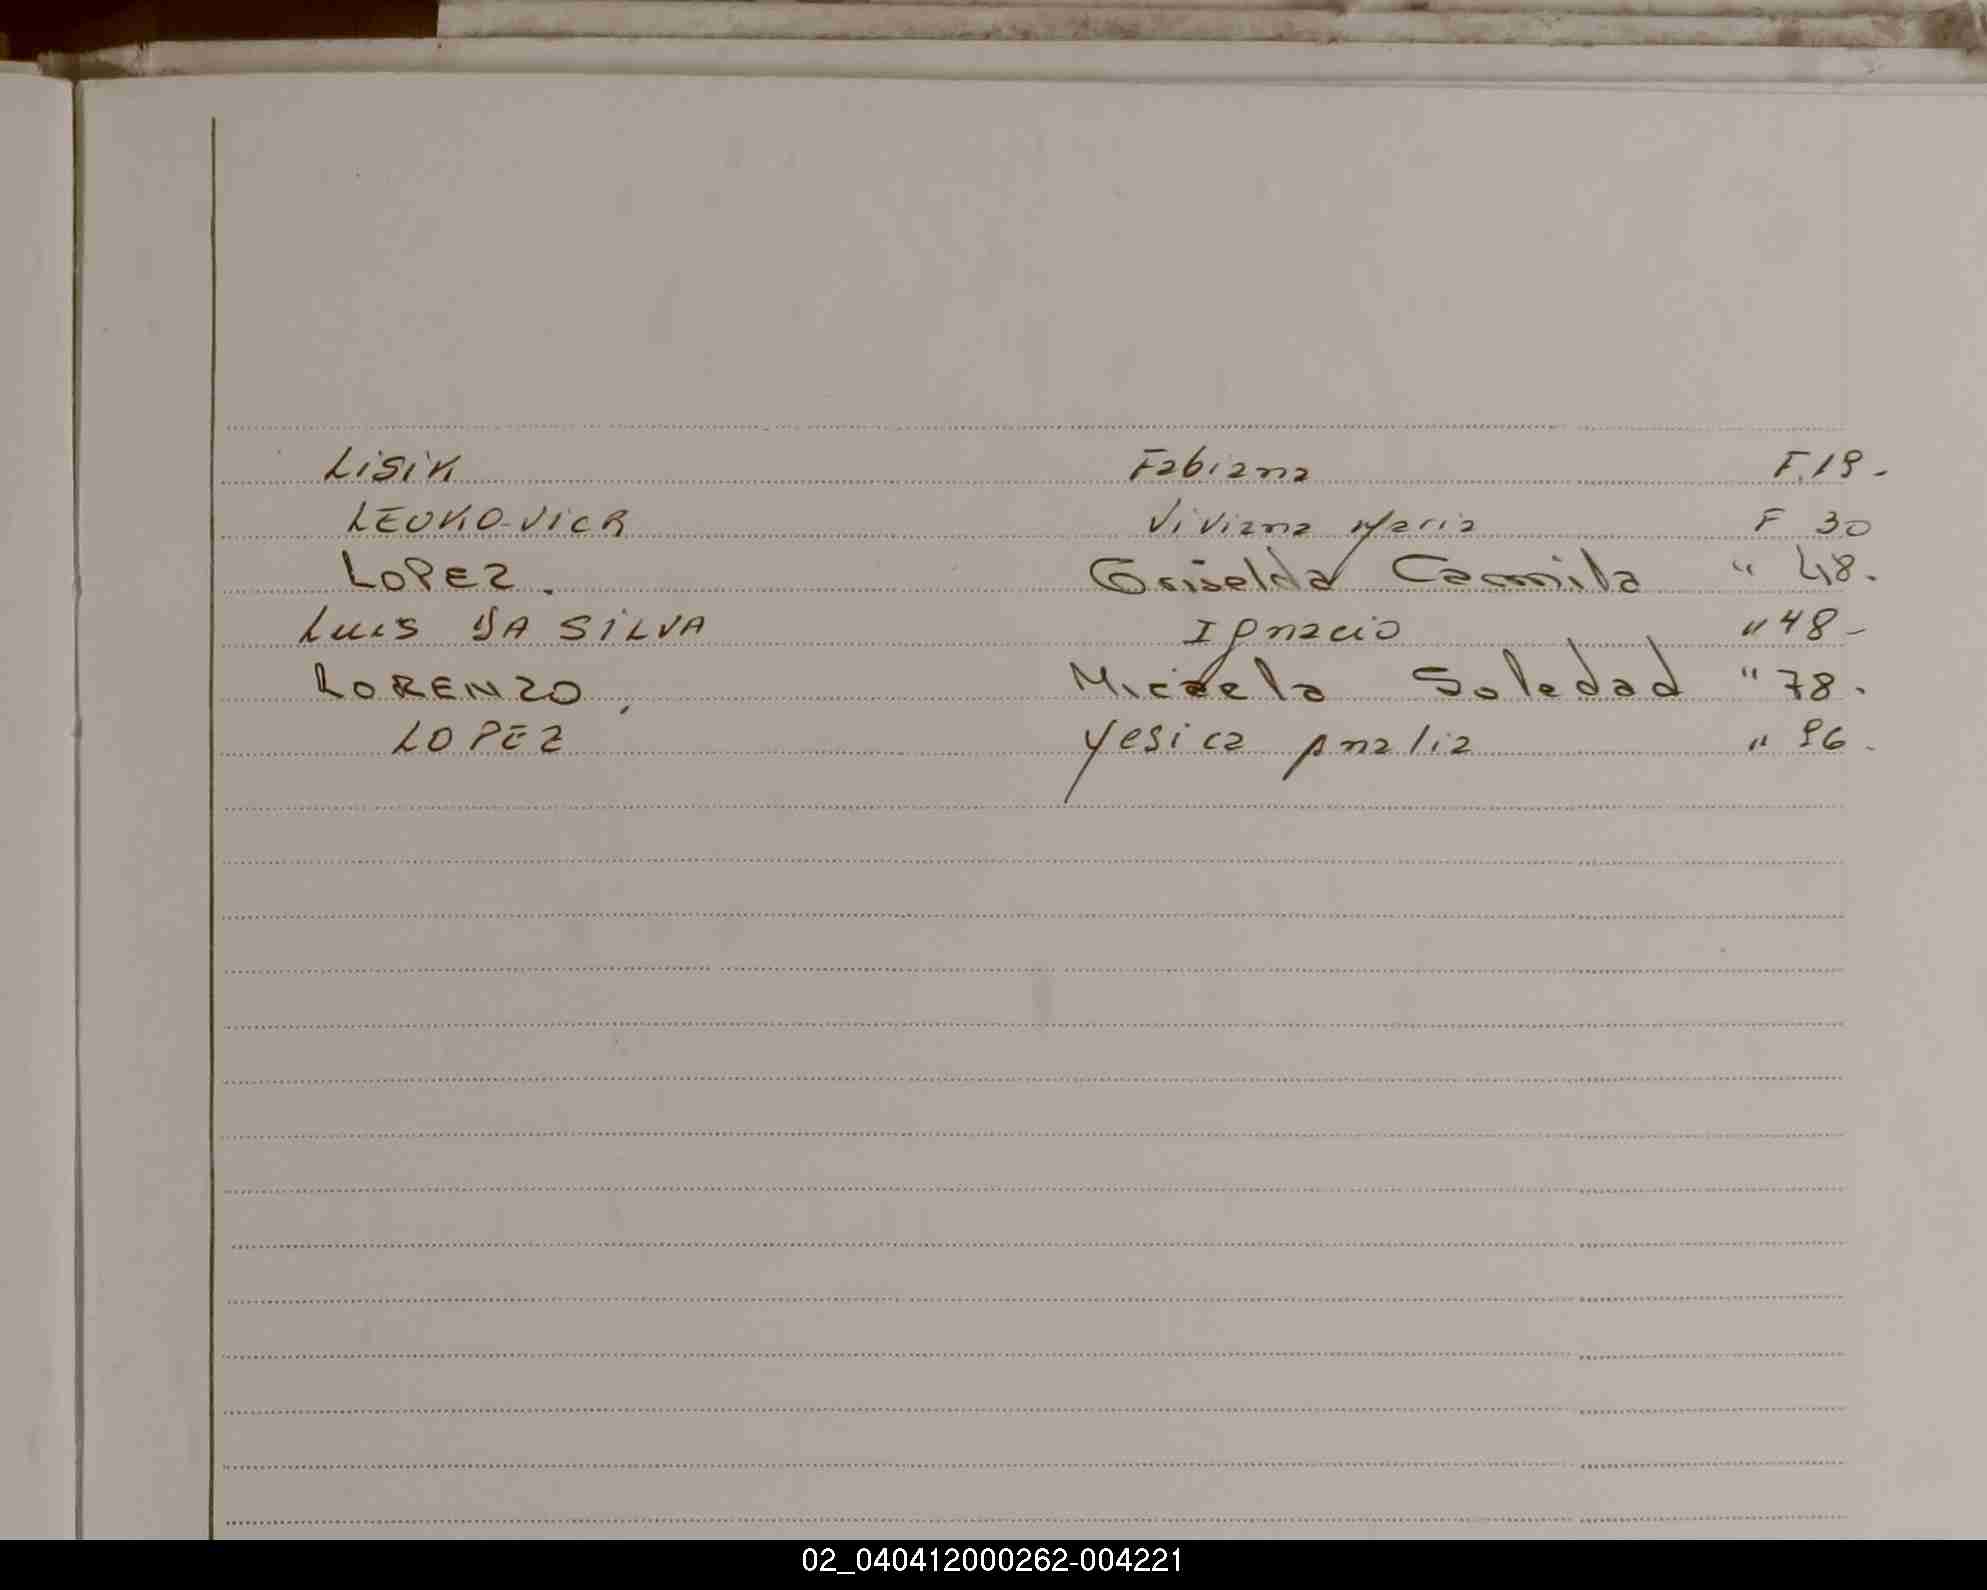 LISIK Fabiana F.19-
LEOKOVICR Viviana Maria F 30
LOPEZ. Griselda Camila " 48.
LUIS DA SILVA Ignacio " 48-
LORENZO, Micaela Soledad " 78.
LOPEZ Yesica Analia " 96.
02_040412000262-004221